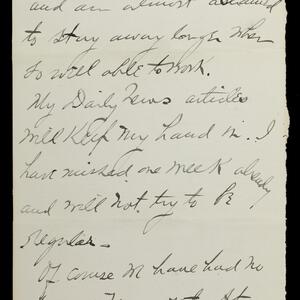 and am almost ashamed
to stay away longer when
so well able to work.
My Daily News articles
will keep my hand in. I
have missed one week already
and will not try to be
regular -
Of course we have had no